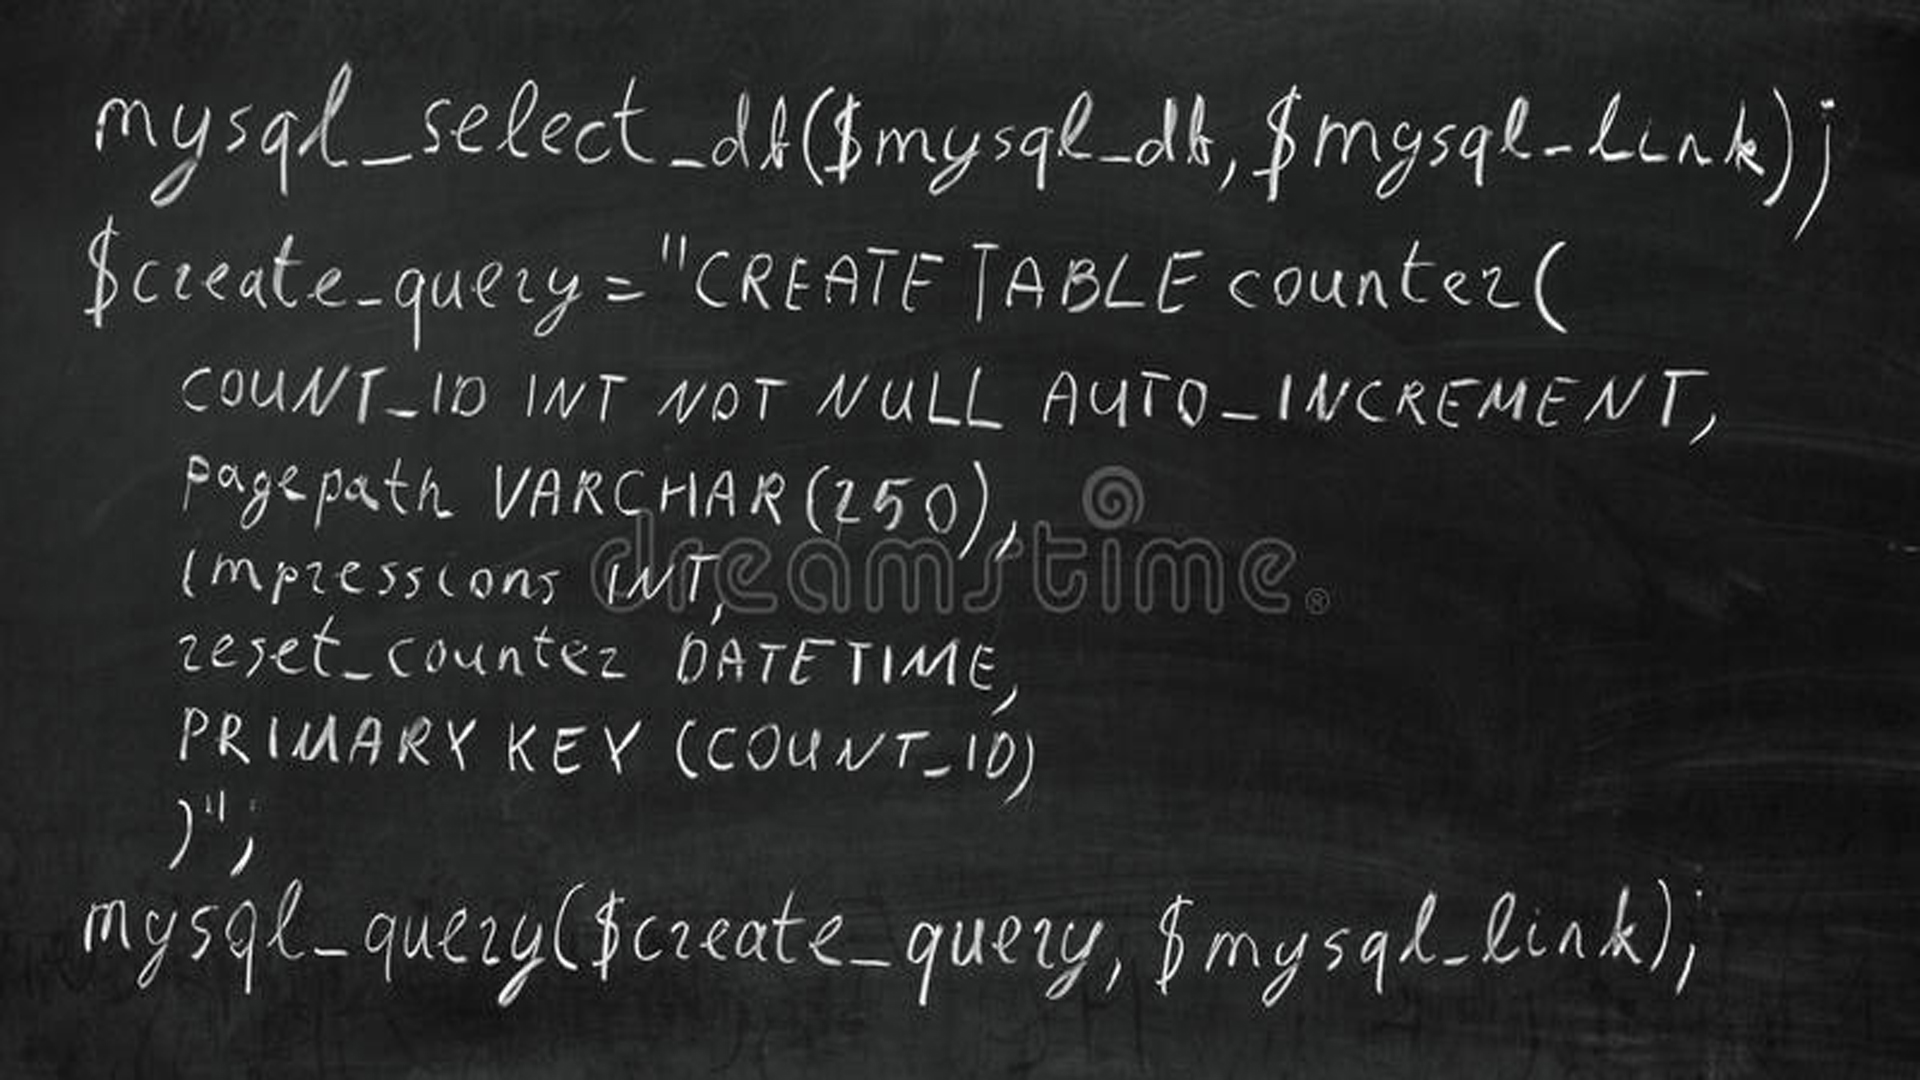 mysql_select_db($mysql_db, $mysql_link);
$create_query = "CREATE TABLE counter(
COUNT_ID INT NOT NULL AUTO_INCREMENT,
pagepath VARCHAR(250),
impressions INT,
reset_counter DATETIME,
PRIMARY KEY (COUNT_ID)
)";
mysql_query($create_query, $mysql_link);
dreamstime®